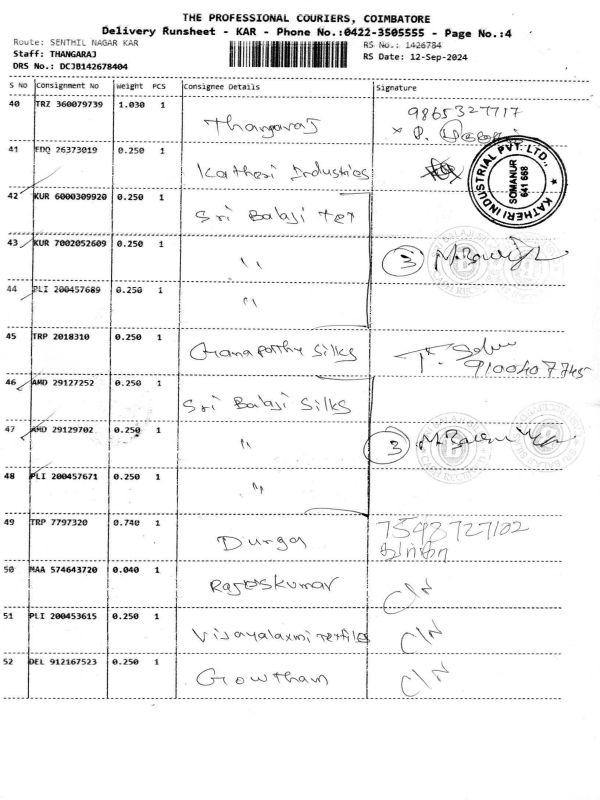 THE PROFESSIONAL COURIERS, COIMBATORE
Delivery Runsheet - KAR - Phone No.:0422-3505555 - Page No.:4
Route: SENTHIL NAGAR KAR
RS No.: 1426784
Staff: THANGARAJ
RS Date: 12-Sep-2024
DRS No.: DCJB142678404
S No Consignment No Weight PCS Consignee Details Signature
40 TRZ 360079739 1.030 1 Thangaraj 9865327717
41 EDQ 26373019 0.250 1 Katheri Industries
KATHERI INDUSTRIAL PVT. LTD.,
SOMANUR
641 668
42 KUR 6000309920 0.250 1 Sri Balaji Tex
43 KUR 7002052609 0.250 1 " 3
44 PLI 200457689 0.250 1 "
45 TRP 2018310 0.250 1 Ganapathy Silks
9100407745
46 AMD 29127252 0.250 1 Sri Balaji Silks
47 AMD 29129702 0.250 1 " 3
48 PLI 200457671 0.250 1 "
49 TRP 7797320 0.740 1 Durga 7598727102
துர்கா
50 MAA 574643720 0.040 1 Rajeskumar C/N
51 PLI 200453615 0.250 1 Vijayalaxmi Textiles C/N
52 DEL 912167523 0.250 1 Gowtham C/N